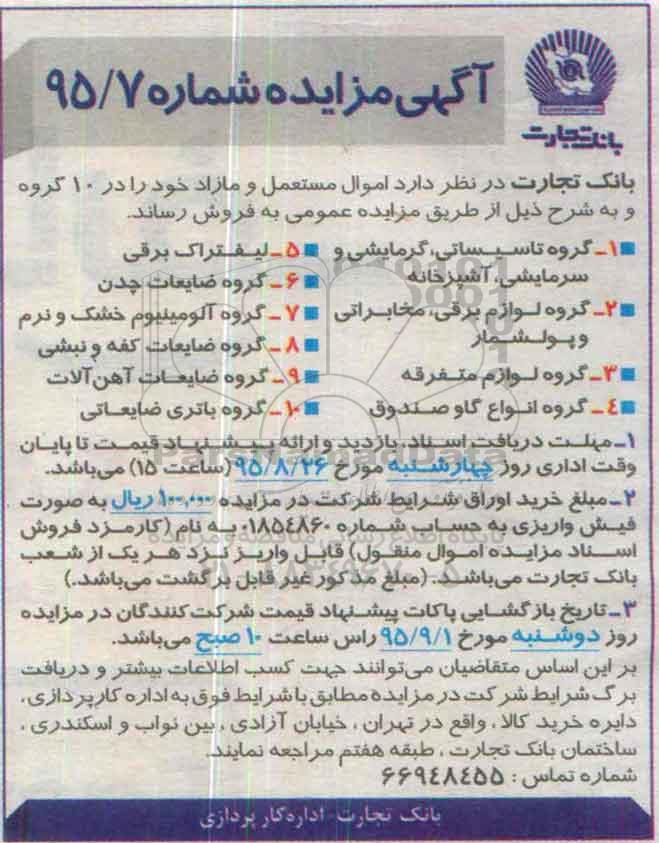 آگهی مزایده شماره ۹۵/۷
بانک تجارت
بانک تجارت در نظر دارد اموال مستعمل و مازاد خود را در ۱۰ گروه
و به شرح ذیل از طریق مزایده عمومی به فروش رساند.
۱ـ گروه تاسیساتی، گرمایشی و
سرمایشی، آشپزخانه
۲ـ گروه لوازم برقی، مخابراتی
و پولشمار
۳ـ گروه لوازم متفرقه
۴ـ گروه انواع گاو صندوق
۵ـ لیفتراک برقی
۶ـ گروه ضایعات چدن
۷ـ گروه آلومینیوم خشک و نرم
۸ـ گروه ضایعات کفه و نبشی
۹ـ گروه ضایعات آهن‌آلات
۱۰ـ گروه باتری ضایعاتی
۱ـ مهلت دریافت اسناد، بازدید و ارائه پیشنهاد قیمت تا پایان
وقت اداری روز چهارشنبه مورخ ۹۵/۸/۲۶ (ساعت ۱۵) می‌باشد.
۲ـ مبلغ خرید اوراق شرایط شرکت در مزایده ۱۰۰,۰۰۰ ریال به صورت
فیش واریزی به حساب شماره ۰۱۸۵۴۸۶۰ به نام (کارمزد فروش
اسناد مزایده اموال منقول) قابل واریز نزد هر یک از شعب
بانک تجارت می‌باشد. (مبلغ مذکور غیر قابل برگشت می‌باشد.)
۳ـ تاریخ بازگشایی پاکات پیشنهاد قیمت شرکت‌کنندگان در مزایده
روز دوشنبه مورخ ۹۵/۹/۱ راس ساعت ۱۰ صبح می‌باشد.
بر این اساس متقاضیان می‌توانند جهت کسب اطلاعات بیشتر و دریافت
برگ شرایط شرکت در مزایده مطابق با شرایط فوق به اداره کارپردازی،
دایره خرید کالا، واقع در تهران، خیابان آزادی، بین نواب و اسکندری،
ساختمان بانک تجارت، طبقه هفتم مراجعه نمایند.
شماره تماس : ۶۶۹۴۸۴۵۵
بانک تجارت- اداره کارپردازی
ParsNamadData